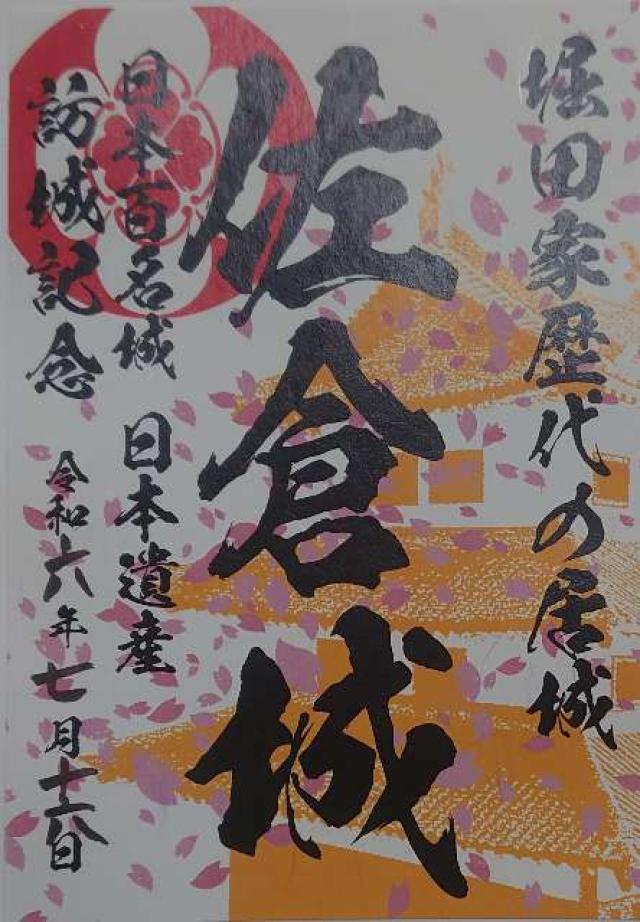 堀田家歴代の居城
佐倉城
日本百名城 日本遺産
訪城記念 令和六年七月十六日